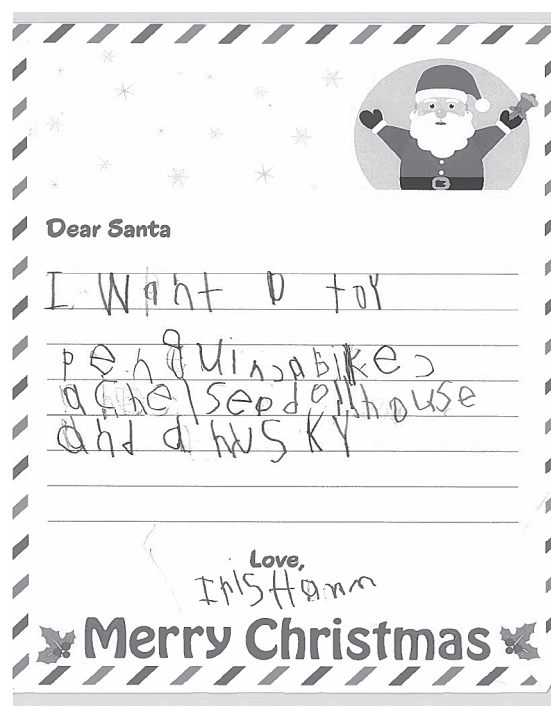 Dear Santa
I Want a toy
penguin, a bike,
a Chelsea dollhouse
and a husky
Love,
Iris Hamm
Merry Christmas